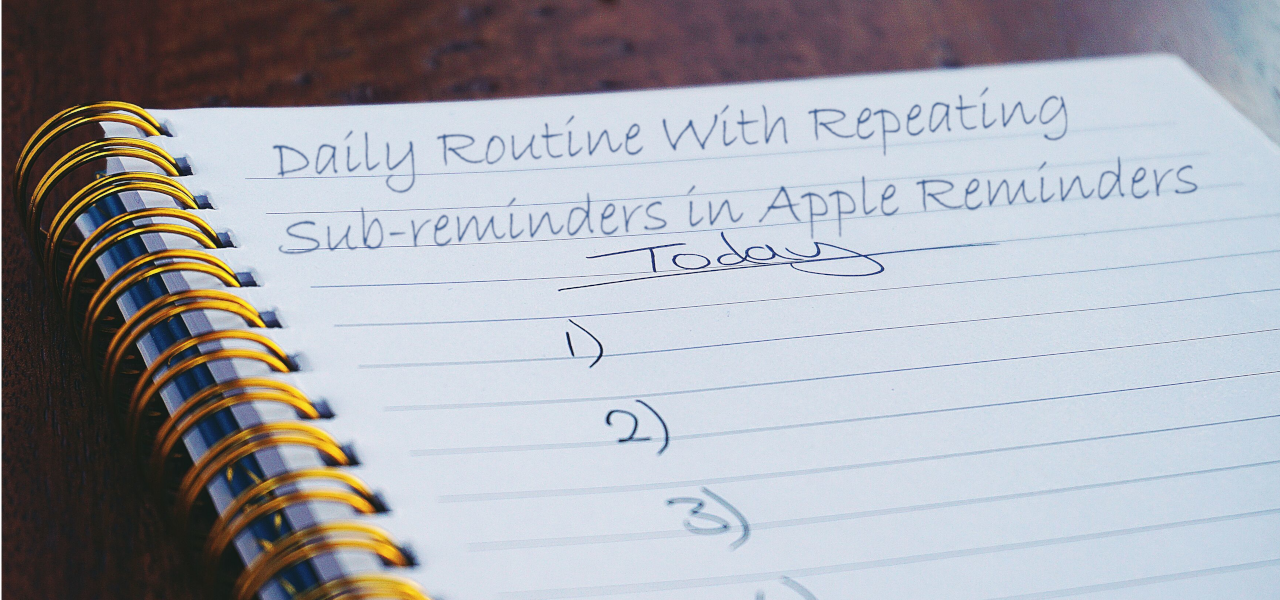 Daily Routine With Repeating
Sub-reminders in Apple Reminders
Today
1)
2)
3)